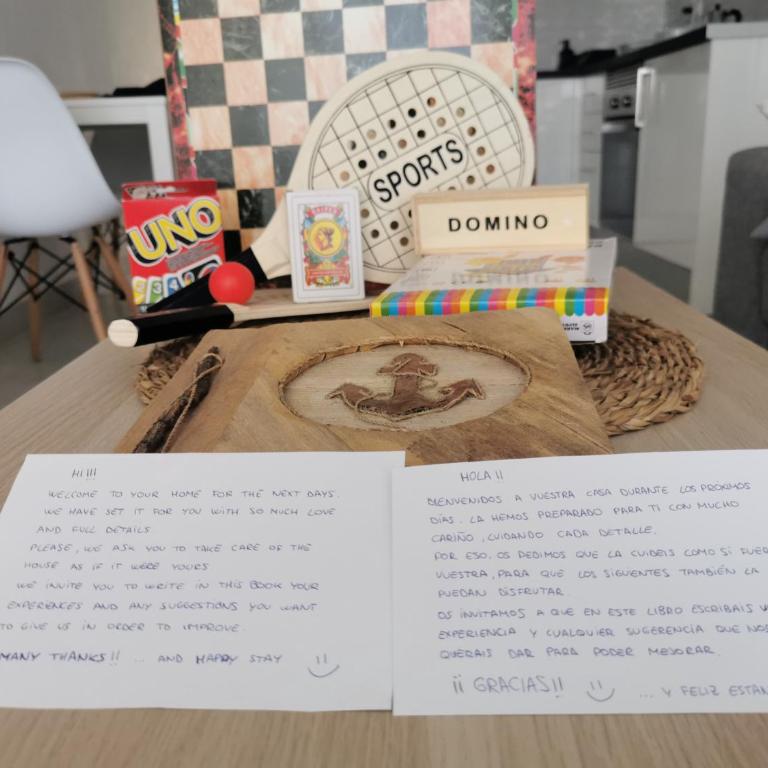 SPORTS
UNO
DOMINO
HI!!!
WELCOME TO YOUR HOME FOR THE NEXT DAYS.
WE HAVE SET IT FOR YOU WITH SO MUCH LOVE
AND FULL DETAILS.
PLEASE, WE ASK YOU TO TAKE CARE OF THE
HOUSE AS IF IT WERE YOURS
WE INVITE YOU TO WRITE IN THIS BOOK YOUR
EXPERIENCES AND ANY SUGGESTIONS YOU WANT
TO GIVE US IN ORDER TO IMPROVE.
MANY THANKS!! ... AND HAPPY STAY
HOLA !!
BIENVENIDOS A VUESTRA CASA DURANTE LOS PROXIMOS
DÍAS. LA HEMOS PREPARADO PARA TI CON MUCHO
CARIÑO, CUIDANDO CADA DETALLE.
POR ESO, OS PEDIMOS QUE LA CUIDEIS COMO SI
VUESTRA, PARA QUE LOS SIGUIENTES TAMBIÉN LA
PUEDAN DISFRUTAR.
OS INVITAMOS A QUE EN ESTE LIBRO ESCRIBAIS
EXPERIENCIA Y CUALQUIER SUGERENCIA QUE NOS
QUERAIS DAR PARA PODER MEJORAR.
¡¡ GRACIAS!! ... Y FELIZ